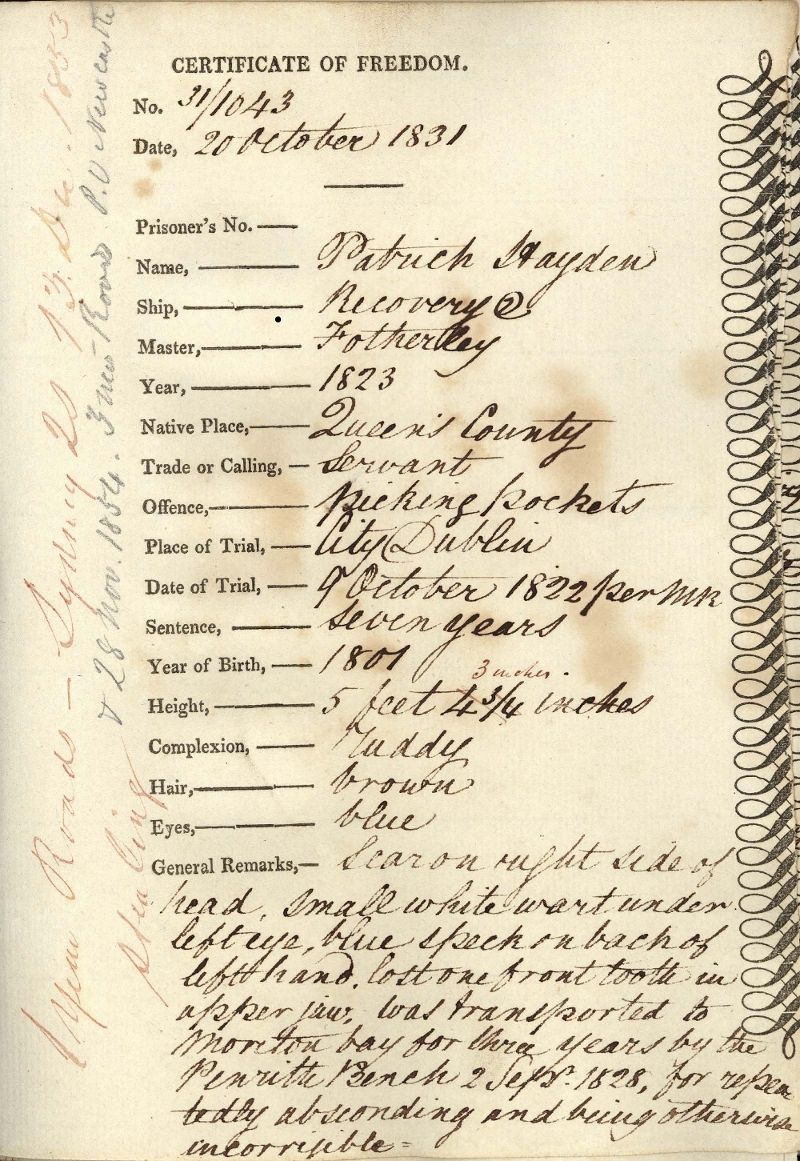 CERTIFICATE OF FREEDOM.
No. 31/1043
Date, 20 October 1831
Prisoner's No. —
Name, — Patrick Hayden
Ship, — Recovery 2
Master, — Fotherley
Year, — 1823
Native Place, — Queen's County
Trade or Calling, — Servant
Offence, — picking pockets
Place of Trial, — City Dublin
Date of Trial, — 9 October 1822 per MR
Sentence, — seven years
Year of Birth, — 1801
3 inches.
Height, — 5 feet 4 3/4 inches
Complexion, — Ruddy
Hair, — brown
Eyes, — blue
General Remarks, — Scar on right side of
head, small white wart under
left eye, blue speck on back of
left hand, lost one front tooth in
upper jaw, was transported to
Moreton bay for three years by the
Penrith Bench 2 Sepr. 1828, for repea
tedly absconding and being otherwise
incorrigible =
1 year Roads — Sydney 13 Dec. 1853
stealing
& 28 Nov. 1854. 3 mos Roads P.O Newcastle